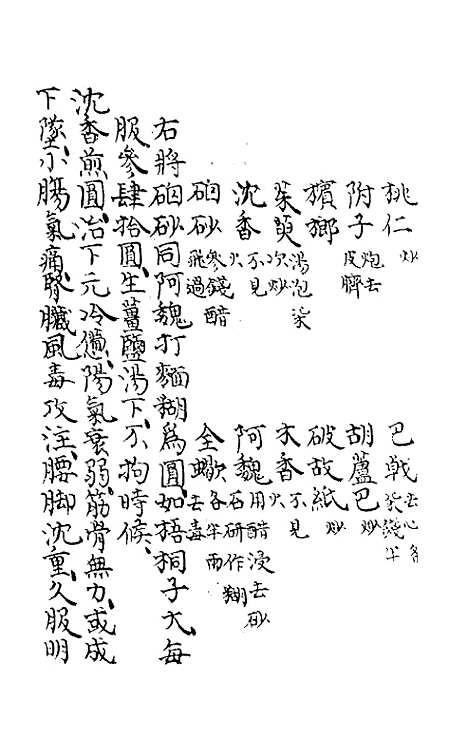 桃仁炒 巴戟去心各柒錢半
附子炮去皮臍 胡蘆巴炒
檳榔 破故紙炒
茱萸湯泡柒次炒 木香不見火
沈香不見火 阿魏用醋浸去砂石研作糊
硇砂參錢醋飛過 全蠍去毒各半兩
右將硇砂同阿魏打麵糊為圓如梧桐子大每
服參肆拾圓生薑鹽湯下不拘時候
沈香煎圓治下元冷憊陽氣衰弱筋骨無力或成
下墜小腸氣痛腎臟風毒攻注腰脚沈重久服明